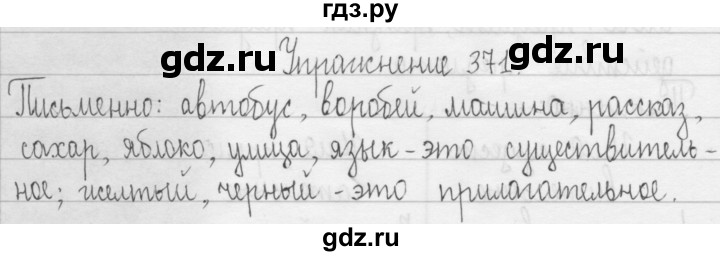 гдз.ру
gdz.ru gdz.ru
Упражнение 371.
Письменно: автобус, воробей, машина, рассказ,
сахар, яблоко, улица, язык - это существитель-
ное; желтый, черный - это прилагательное.
gdz.ru gdz.ru
gdz.ru